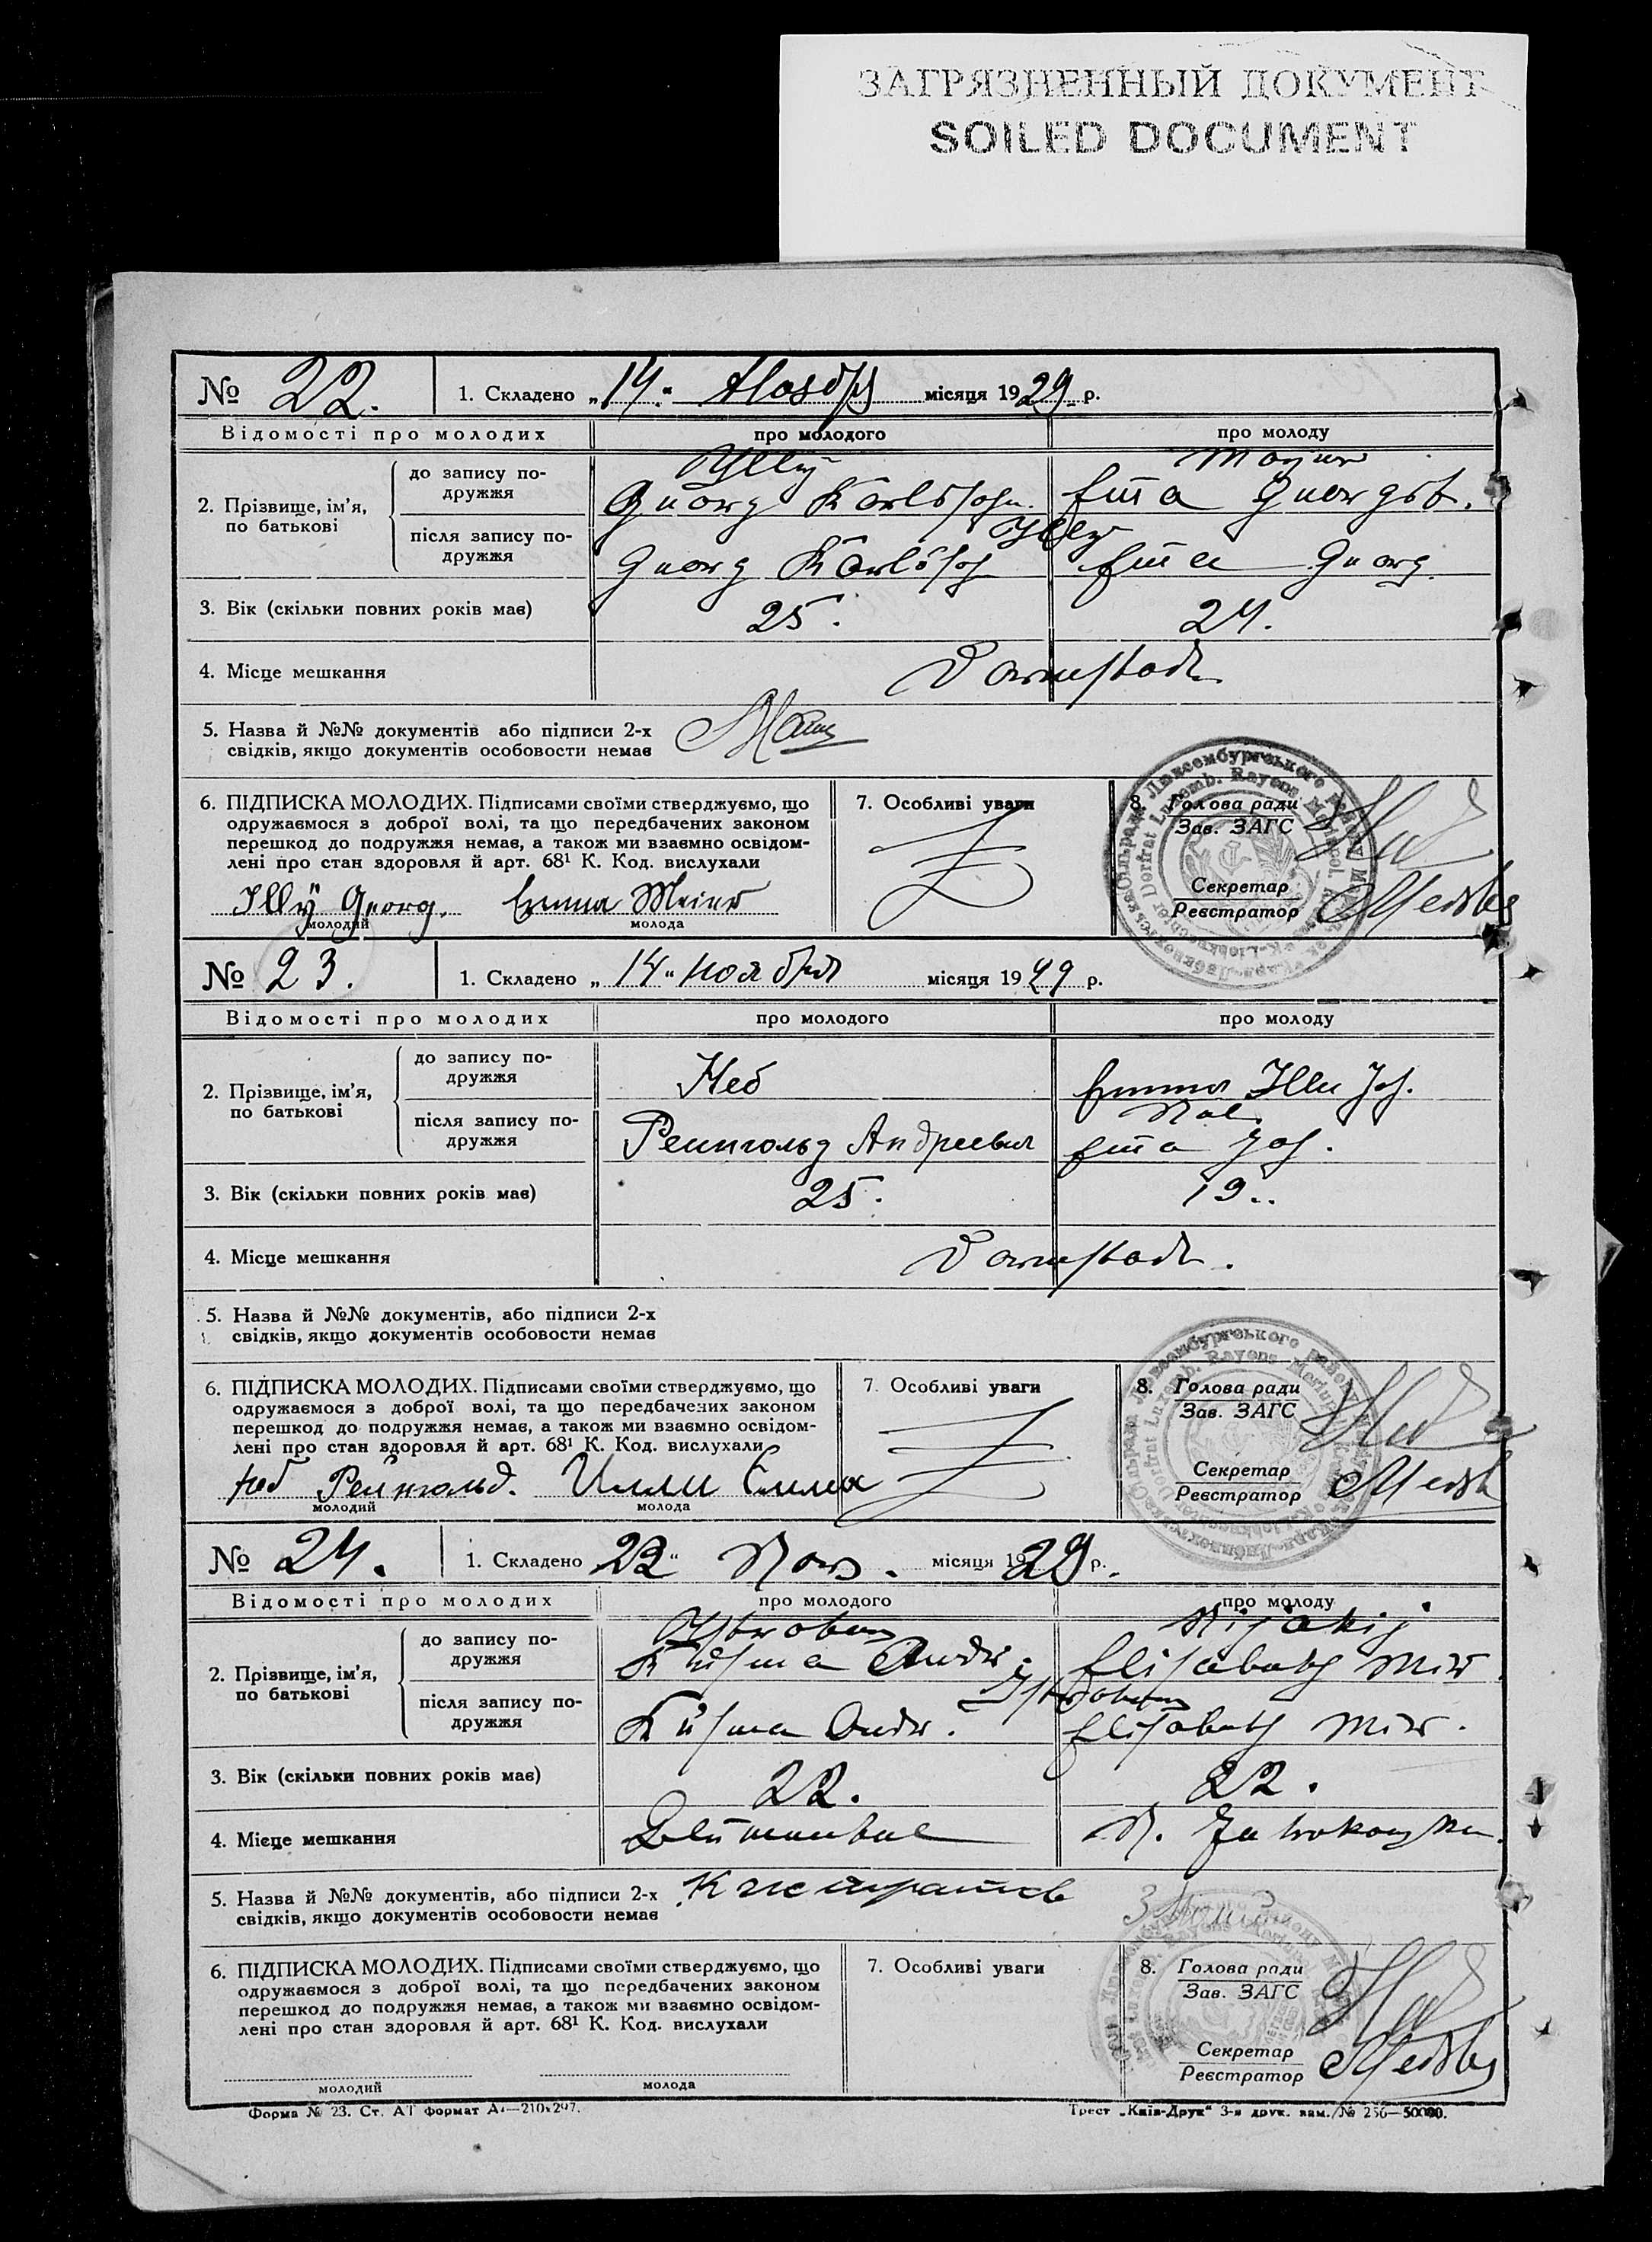 ЗАГРЯЗНЕННЫЙ ДОКУМЕНТ
SOILED DOCUMENT
№ 22. 1. Складено „14“ місяця 1929 р.
Відомості про молодих про молодого про молоду
2. Прізвище, ім'я, по батькові
до запису подружжя
Illÿ
Georg Karlssohn. Emma Georgst.
після запису подружжя
Illy
Georg Karlssoh Emma Georg
3. Вік (скільки повних років має) 25. 24.
4. Місце мешкання Darmstadt
5. Назва й №№ документів або підписи 2-х
свідків, якщо документів особовости немає
6. ПІДПИСКА МОЛОДИХ. Підписами своїми стверджуємо, що
одружаємося з доброї волі, та що передбачених законом
перешкод до подружжя немає, а також ми взаємно освідом-
лені про стан здоровля й арт. 68¹ К. Код. вислухали
Illÿ Georg. Emma Meier
молодий молода
7. Особливі уваги
8. Голова ради
Зав. ЗАГС
Секретар
Реєстратор
№ 23. 1. Складено „14“ ноября місяця 1929 р.
Відомості про молодих про молодого про молоду
2. Прізвище, ім'я, по батькові
до запису подружжя
Неб Emma Illi Joh.
після запису подружжя
Рейнгольд Андреевич Emma Joh.
3. Вік (скільки повних років має) 25. 19.
4. Місце мешкання Darmstadt.
5. Назва й №№ документів, або підписи 2-х
свідків, якщо документів особовости немає
6. ПІДПИСКА МОЛОДИХ. Підписами своїми стверджуємо, що
одружаємося з доброї волі, та що передбачених законом
перешкод до подружжя немає, а також ми взаємно освідом-
лені про стан здоровля й арт. 68¹ К. Код. вислухали
Неб Рейнгольд. Илли Емма
молодий молода
7. Особливі уваги
8. Голова ради
Зав. ЗАГС
Секретар
Реєстратор
№ 24. 1. Складено 22“ Nov. місяця 1929 р.
Відомості про молодих про молодого про молоду
2. Прізвище, ім'я, по батькові
до запису подружжя
Kusma Andr. Elisabeth
після запису подружжя
Kusma Andr. Elisabeth
3. Вік (скільки повних років має) 22. 22.
4. Місце мешкання Blumental
5. Назва й №№ документів, або підписи 2-х
свідків, якщо документів особовости немає
6. ПІДПИСКА МОЛОДИХ. Підписами своїми стверджуємо, що
одружаємося з доброї волі, та що передбачених законом
перешкод до подружжя немає, а також ми взаємно освідом-
лені про стан здоровля й арт. 68¹ К. Код. вислухали
молодий молода
7. Особливі уваги
8. Голова ради
Зав. ЗАГС
Секретар
Реєстратор
Форма № 23. Ст. АТ формат А4—210×297. Трест „Київ-Друк“ 3-я друк. зам. № 256—50000.